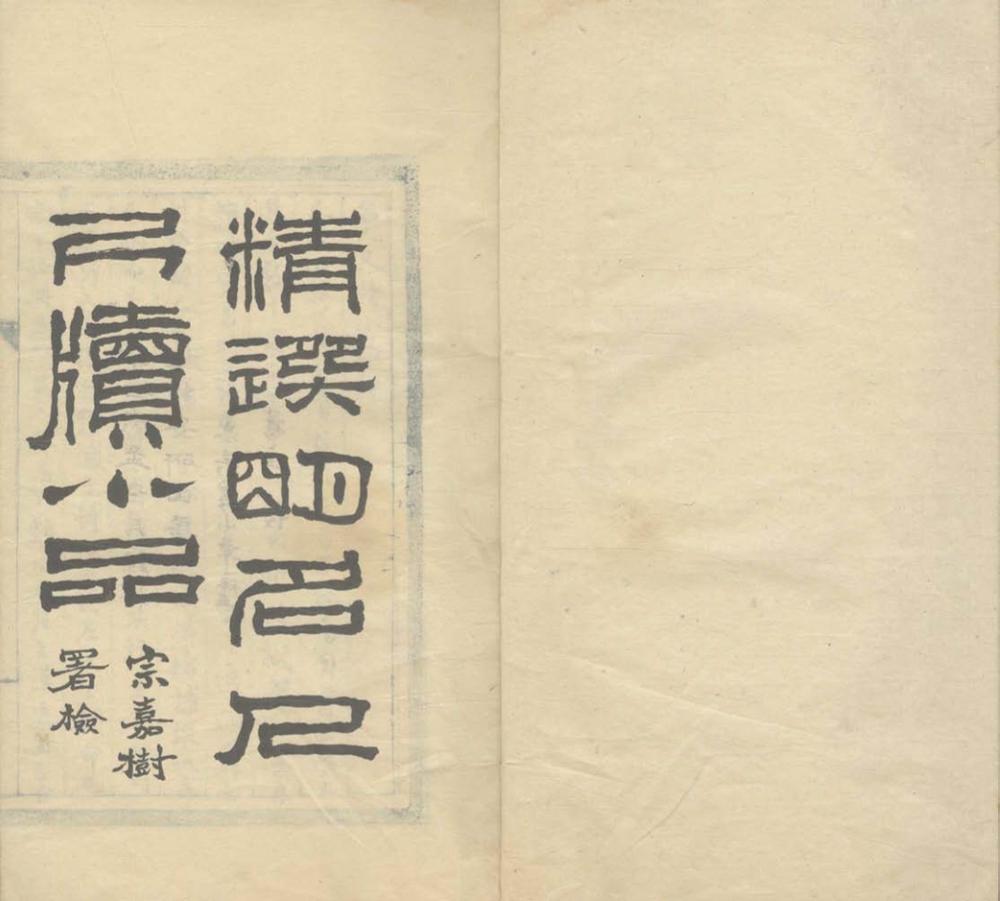 精選朙名人
尺牘小品
宗嘉樹
署檢